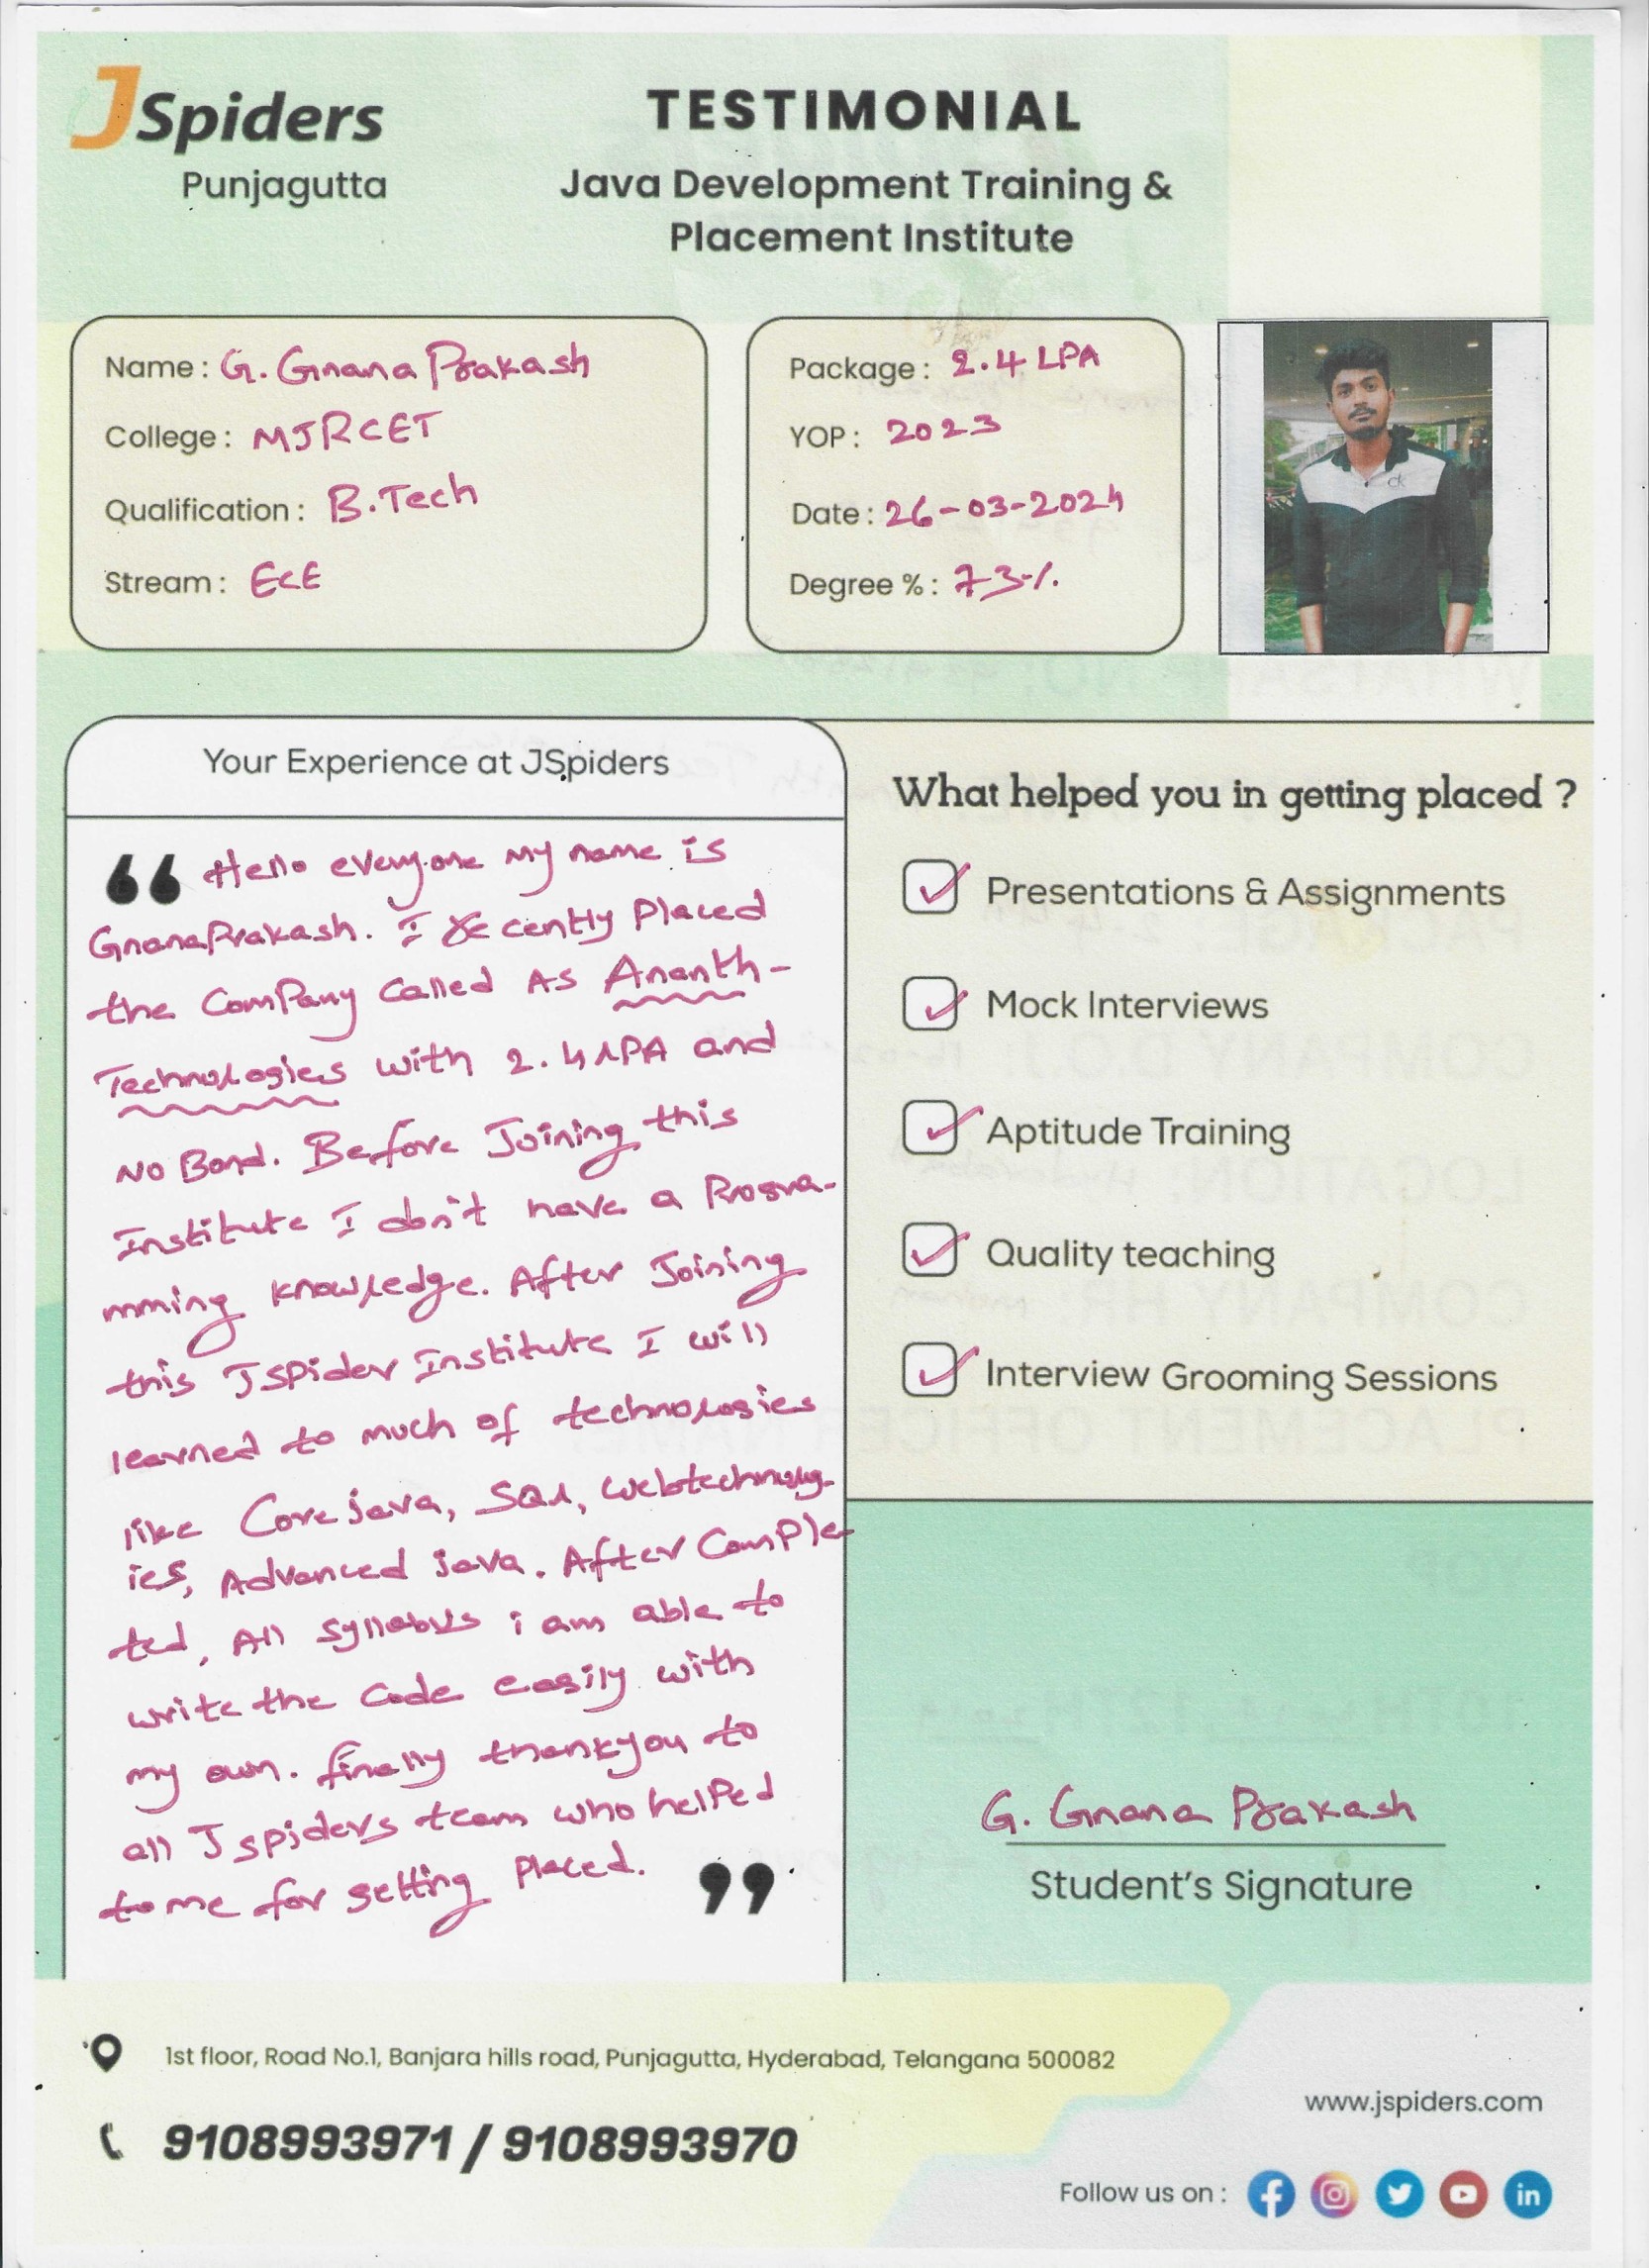 JSpiders
Punjagutta
TESTIMONIAL
Java Development Training &
Placement Institute
Name : G. Gnana Prakash
College : MJRCET
Qualification : B.Tech
Stream : ECE
Package : 2.4 LPA
YOP : 2023
Date : 26-03-2024
Degree % : 73%
ck
Your Experience at JSpiders
“ Hello everyone my name is
GnanaPrakash. I recently Placed
the Company Called As Ananth-
Technologies with 2.4 LPA and
No Bond. Before Joining this
Institute I don't have a Progra-
mming knowledge. After Joining
this JSpider Institute I will
learned to much of technologies
like Core java, SQL, Webtechnolog-
ies, Advanced java. After Comple-
ted, All syllabus i am able to
write the Code easily with
my own. finally thankyou to
all Jspiders team who helped
to me for getting Placed. ”
What helped you in getting placed ?
Presentations & Assignments
Mock Interviews
Aptitude Training
Quality teaching
Interview Grooming Sessions
G. Gnana Prakash
Student's Signature
1st floor, Road No.1, Banjara hills road, Punjagutta, Hyderabad, Telangana 500082
9108993971 / 9108993970
www.jspiders.com
Follow us on :